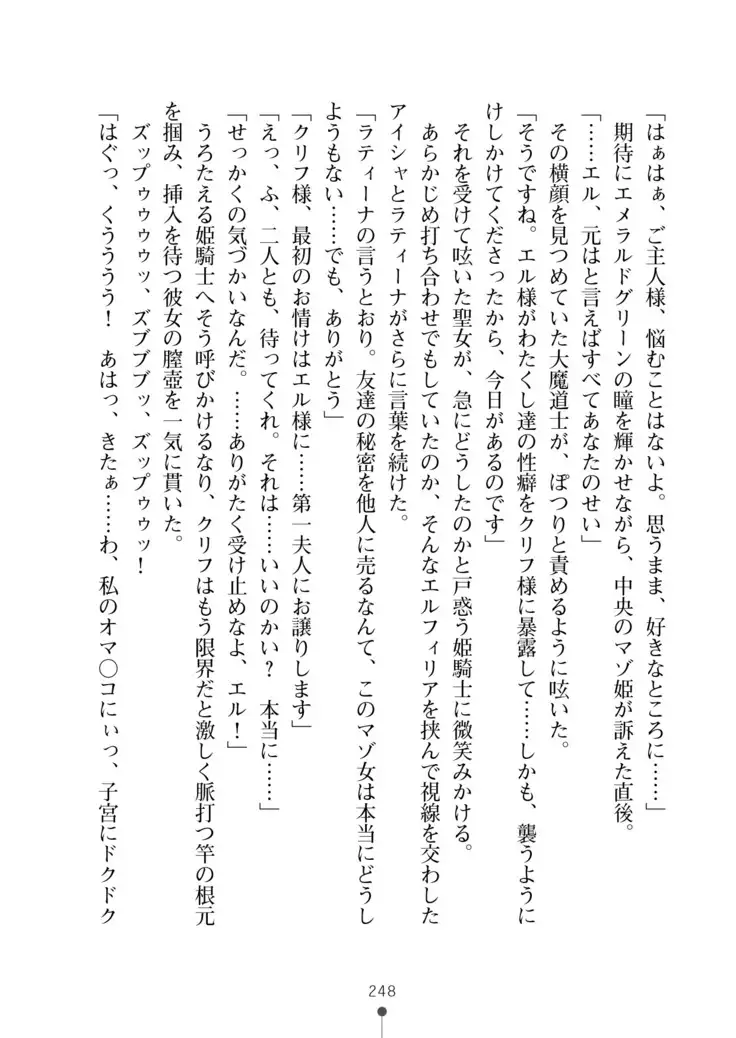 「はぁはぁ、ご主人様、悩むことはないよ。思うまま、好きなところに……」
期待にエメラルドグリーンの瞳を輝かせながら、中央のマゾ姫が訴えた直後。
「……エル、元はと言えばすべてあなたのせい」
その横顔を見つめていた大魔道士が、ぽつりと責めるように呟いた。
「そうですね。エル様がわたくし達の性癖をクリフ様に暴露して……しかも、襲うように
けしかけてくださったから、今日があるのです」
それを受けて呟いた聖女が、急にどうしたのかと戸惑う姫騎士に微笑みかける。
あらかじめ打ち合わせでもしていたのか、そんなエルフィリアを挟んで視線を交わした
アイシャとラティーナがさらに言葉を続けた。
「ラティーナの言うとおり。友達の秘密を他人に売るなんて、このマゾ女は本当にどうし
ようもない……でも、ありがとう」
「クリフ様、最初のお情けはエル様に……第一夫人にお譲りします」
「えっ、ふ、二人とも、待ってくれ。それは……いいのかい？　本当に……」
「せっかくの気づかいなんだ。……ありがたく受け止めなよ、エル！」
うろたえる姫騎士へそう呼びかけるなり、クリフはもう限界だと激しく脈打つ竿の根元
を掴み、挿入を待つ彼女の膣壺を一気に貫いた。
ズップゥゥゥゥッ、ズブブブッ、ズップゥゥッ！
「はぐっ、くううう！　あはっ、きたぁ……わ、私のオマ〇コにぃっ、子宮にドクドク
248